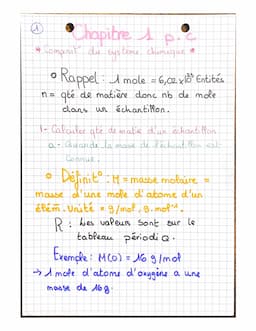 1
Chapitre 1 p.c
* Composit° du système chimique *
○ Rappel : 1 mole = 6,02 x 10²³ Entités
n = qté de matière donc nb de mole
dans un échantillon.
1 - Calculer qté de matie d'un échantillon
a - Quande la masse de l'échantillon est
connue.
○ Définit° : M = masse molaire =
masse d'une mole d'atome d'un
élém. Unité = g/mol, g.mol⁻¹
R : Les valeurs sont sur le
tableau périodiQ.
Exemple : M(O) = 16 g/mol
→ 1 mole d'atome d'oxygène a une
masse de 16g.